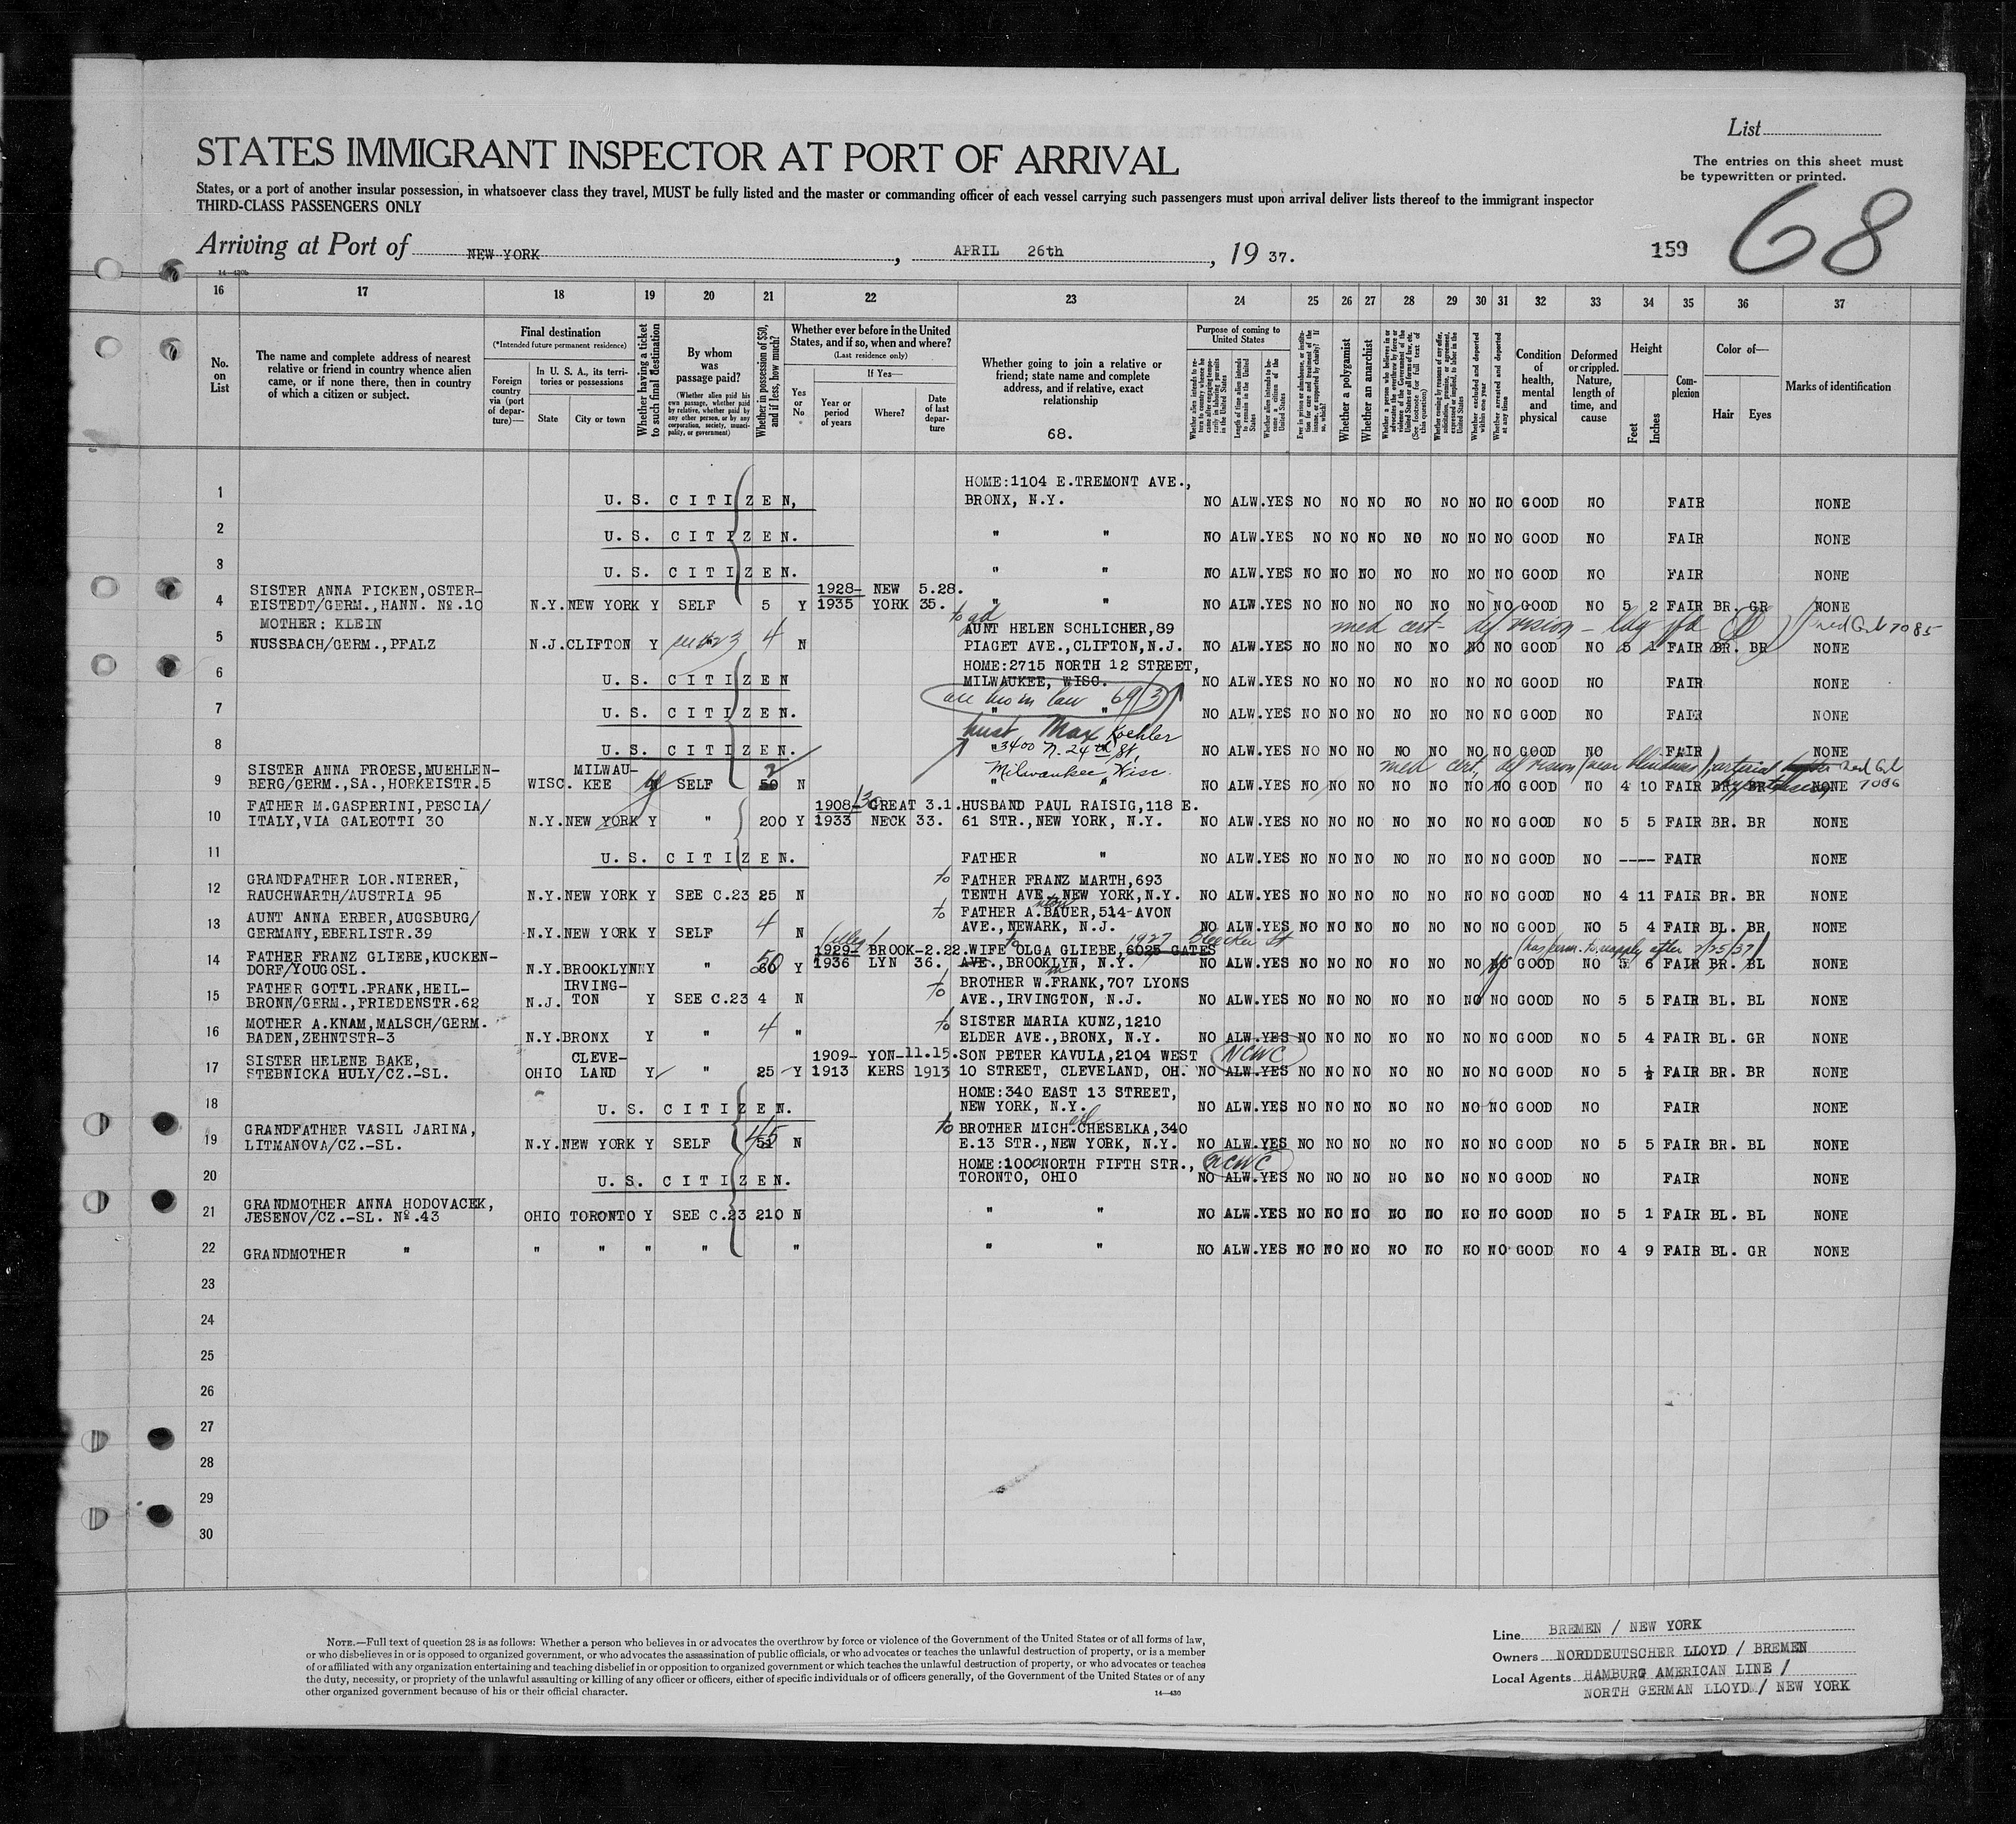 List
The entries on this sheet must
be typewritten or printed.
STATES IMMIGRANT INSPECTOR AT PORT OF ARRIVAL
States, or a port of another insular possession, in whatsoever class they travel, MUST be fully listed and the master or commanding officer of each vessel carrying such passengers must upon arrival deliver lists thereof to the immigrant inspector
THIRD-CLASS PASSENGERS ONLY
68
Arriving at Port of NEW YORK, APRIL 26th, 19 37. 159
14—430b
16 17 18 19 20 21 22 23 24 25 26 27 28 29 30 31 32 33 34 35 36 37
No. on List
The name and complete address of nearest relative or friend in country whence alien came, or if none there, then in country of which a citizen or subject.
Final destination
(*Intended future permanent residence)
Foreign country via (port of departure)—
In U. S. A., its territories or possessions
State City or town
Whether having a ticket to such final destination
By whom was passage paid?
(Whether alien paid his own passage, whether paid by relative, whether paid by any other person, or by any corporation, society, municipality, or government)
Whether in possession of $50, and if less, how much?
Whether ever before in the United States, and if so, when and where?
(Last residence only)
Yes or No
If Yes—
Year or period of years Where? Date of last departure
Whether going to join a relative or friend; state name and complete address, and if relative, exact relationship
68.
Purpose of coming to United States
Length of time alien intends to remain in the United States
Whether alien intends to become a citizen of the United States
Whether a polygamist
Whether an anarchist
Whether excluded and deported within one year
Whether arrested and deported at any time
Condition of health, mental and physical
Deformed or crippled. Nature, length of time, and cause
Height
Feet Inches
Complexion
Color of—
Hair Eyes
Marks of identification
HOME:1104 E.TREMONT AVE.,
1 U. S. CITIZEN, BRONX, N.Y. NO ALW.YES NO NO NO NO NO NO NO GOOD NO FAIR NONE
2 U. S. CITIZEN. " " NO ALW.YES NO NO NO NO NO NO NO GOOD NO FAIR NONE
3 U. S. CITIZEN. " " NO ALW.YES NO NO NO NO NO NO NO GOOD NO FAIR NONE
SISTER ANNA FICKEN,OSTER- 1928- NEW 5.28.
4 EISTEDT/GERM.,HANN. No.10 N.Y. NEW YORK Y SELF 5 Y 1935 YORK 35. " " NO ALW.YES NO NO NO NO NO NO NO GOOD NO 5 2 FAIR BR. GR NONE
MOTHER: KLEIN to AUNT HELEN SCHLICHER,89 med cert - def vision
5 NUSSBACH/GERM.,PFALZ N.J. CLIFTON Y 4 N PIAGET AVE.,CLIFTON,N.J. NO ALW.YES NO NO NO NO NO NO NO GOOD NO 5 1 FAIR BR. BR NONE
HOME:2715 NORTH 12 STREET,
6 U. S. CITIZEN MILWAUKEE, WISC. NO ALW.YES NO NO NO NO NO NO NO GOOD NO FAIR NONE
7 U. S. CITIZEN. " " NO ALW.YES NO NO NO NO NO NO NO GOOD NO FAIR NONE
Max Koehler
8 U. S. CITIZEN. 3400 N. 24th St. NO ALW.YES NO NO NO NO NO NO NO GOOD NO FAIR NONE
Milwaukee, Wisc. med cert, def vision
SISTER ANNA FROESE,MUEHLEN- MILWAU-
9 BERG/GERM.,SA.,HORKEISTR.5 WISC. KEE SELF 50 2 N " " NO ALW.YES NO NO NO NO NO NO NO GOOD NO 4 10 FAIR BR. BR NONE 7086
FATHER M.GASPERINI,PESCIA/ 1908- GREAT 3.1. HUSBAND PAUL RAISIG,118 E.
10 ITALY,VIA GALEOTTI 30 N.Y. NEW YORK Y " 200 Y 1933 NECK 33. 61 STR.,NEW YORK, N.Y. NO ALW.YES NO NO NO NO NO NO NO GOOD NO 5 5 FAIR BR. BR NONE
11 U. S. CITIZEN. FATHER " NO ALW.YES NO NO NO NO NO NO NO GOOD NO ---- FAIR NONE
GRANDFATHER LOR.NIERER, to FATHER FRANZ MARTH,693
12 RAUCHWARTH/AUSTRIA 95 N.Y. NEW YORK Y SEE C.23 25 N TENTH AVE.,NEW YORK,N.Y. NO ALW.YES NO NO NO NO NO NO NO GOOD NO 4 11 FAIR BR. BR NONE
AUNT ANNA ERBER,AUGSBURG/ to FATHER A.BAUER,514-AVON
13 GERMANY,EBERLISTR.39 N.Y. NEW YORK Y SELF 4 N AVE.,NEWARK, N.J. NO ALW.YES NO NO NO NO NO NO NO GOOD NO 5 4 FAIR BL. BR NONE
1927 Bleecker St (has perm. to reapply after 2/25/37)
FATHER FRANZ GLIEBE,KUCKEN- 1929- BROOK- 2.22. to WIFE OLGA GLIEBE, 6025 GATES
14 DORF/YOUGOSL. N.Y. BROOKLYN Y " 50 Y 1936 LYN 36. AVE.,BROOKLYN, N.Y. NO ALW.YES NO NO NO NO NO NO GOOD NO 5 6 FAIR BR. BL NONE
FATHER GOTTL.FRANK,HEIL- IRVING- to BROTHER W.FRANK,707 LYONS
15 BRONN/GERM.,FRIEDENSTR.62 N.J. TON Y SEE C.23 4 N AVE.,IRVINGTON, N.J. NO ALW.YES NO NO NO NO NO NO NO GOOD NO 5 5 FAIR BL. BL NONE
MOTHER A.KNAM,MALSCH/GERM. to SISTER MARIA KUNZ,1210
16 BADEN,ZEHNTSTR-3 N.Y. BRONX Y " 4 " ELDER AVE.,BRONX, N.Y. NO ALW.YES NO NO NO NO NO NO NO GOOD NO 5 4 FAIR BL. GR NONE
SISTER HELENE BAKE, CLEVE- 1909- YON- 11.15. SON PETER KAVULA,2104 WEST NCWC
17 STEBNICKA HULY/CZ.-SL. OHIO LAND Y " 25 Y 1913 KERS 1913 10 STREET, CLEVELAND, OH. NO ALW.YES NO NO NO NO NO NO NO GOOD NO 5 ½ FAIR BR. BR NONE
HOME:340 EAST 13 STREET,
18 U. S. CITIZEN. NEW YORK, N.Y. NO ALW.YES NO NO NO NO NO NO NO GOOD NO FAIR NONE
GRANDFATHER VASIL JARINA, to BROTHER MICH.CHESELKA,340
19 LITMANOVA/CZ.-SL. N.Y. NEW YORK Y SELF 45 N E.13 STR.,NEW YORK, N.Y. NO ALW.YES NO NO NO NO NO NO NO GOOD NO 5 5 FAIR BR. BL NONE
HOME:1000 NORTH FIFTH STR., NCWC
20 U. S. CITIZEN. TORONTO, OHIO NO ALW.YES NO NO NO NO NO NO NO GOOD NO FAIR NONE
GRANDMOTHER ANNA HODOVACEK,
21 JESENOV/CZ.-SL. No.43 OHIO TORONTO Y SEE C.23 210 N " " NO ALW.YES NO NO NO NO NO NO NO GOOD NO 5 1 FAIR BL. BL NONE
22 GRANDMOTHER " " " " " " " " NO ALW.YES NO NO NO NO NO NO NO GOOD NO 4 9 FAIR BL. GR NONE
23
24
25
26
27
28
29
30
NOTE.—Full text of question 28 is as follows: Whether a person who believes in or advocates the overthrow by force or violence of the Government of the United States or of all forms of law,
or who disbelieves in or is opposed to organized government, or who advocates the assassination of public officials, or who advocates or teaches the unlawful destruction of property, or is a member
of or affiliated with any organization entertaining and teaching disbelief in or opposition to organized government or which teaches the unlawful destruction of property, or who advocates or teaches
the duty, necessity, or propriety of the unlawful assaulting or killing of any officer or officers, either of specific individuals or of officers generally, of the Government of the United States or of any
other organized government because of his or their official character.
14—430
Line BREMEN / NEW YORK
Owners NORDDEUTSCHER LLOYD / BREMEN
Local Agents HAMBURG AMERICAN LINE /
NORTH GERMAN LLOYD / NEW YORK